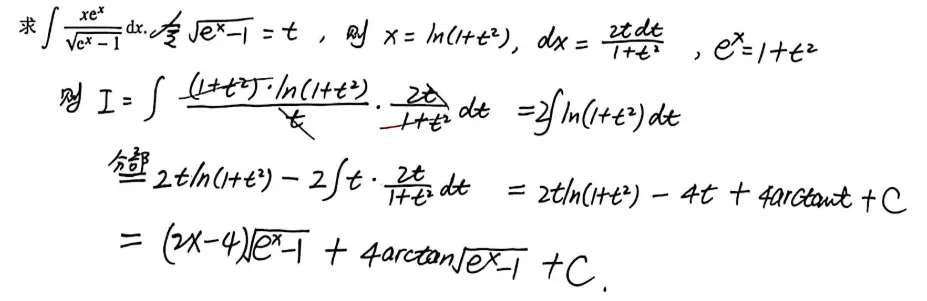 求∫ xeˣ/√(eˣ − 1) dx. 令 √(eˣ−1) = t , 则 x = ln(1+t²), dx = 2tdt/(1+t²) , eˣ=1+t²
则 I = ∫ (1+t²)·ln(1+t²)/t · 2t/(1+t²) dt = 2∫ln(1+t²)dt
分部= 2tln(1+t²) − 2∫t · 2t/(1+t²) dt = 2tln(1+t²) − 4t + 4arctant + C
= (2x−4)√(eˣ−1) + 4arctan√(eˣ−1) + C.